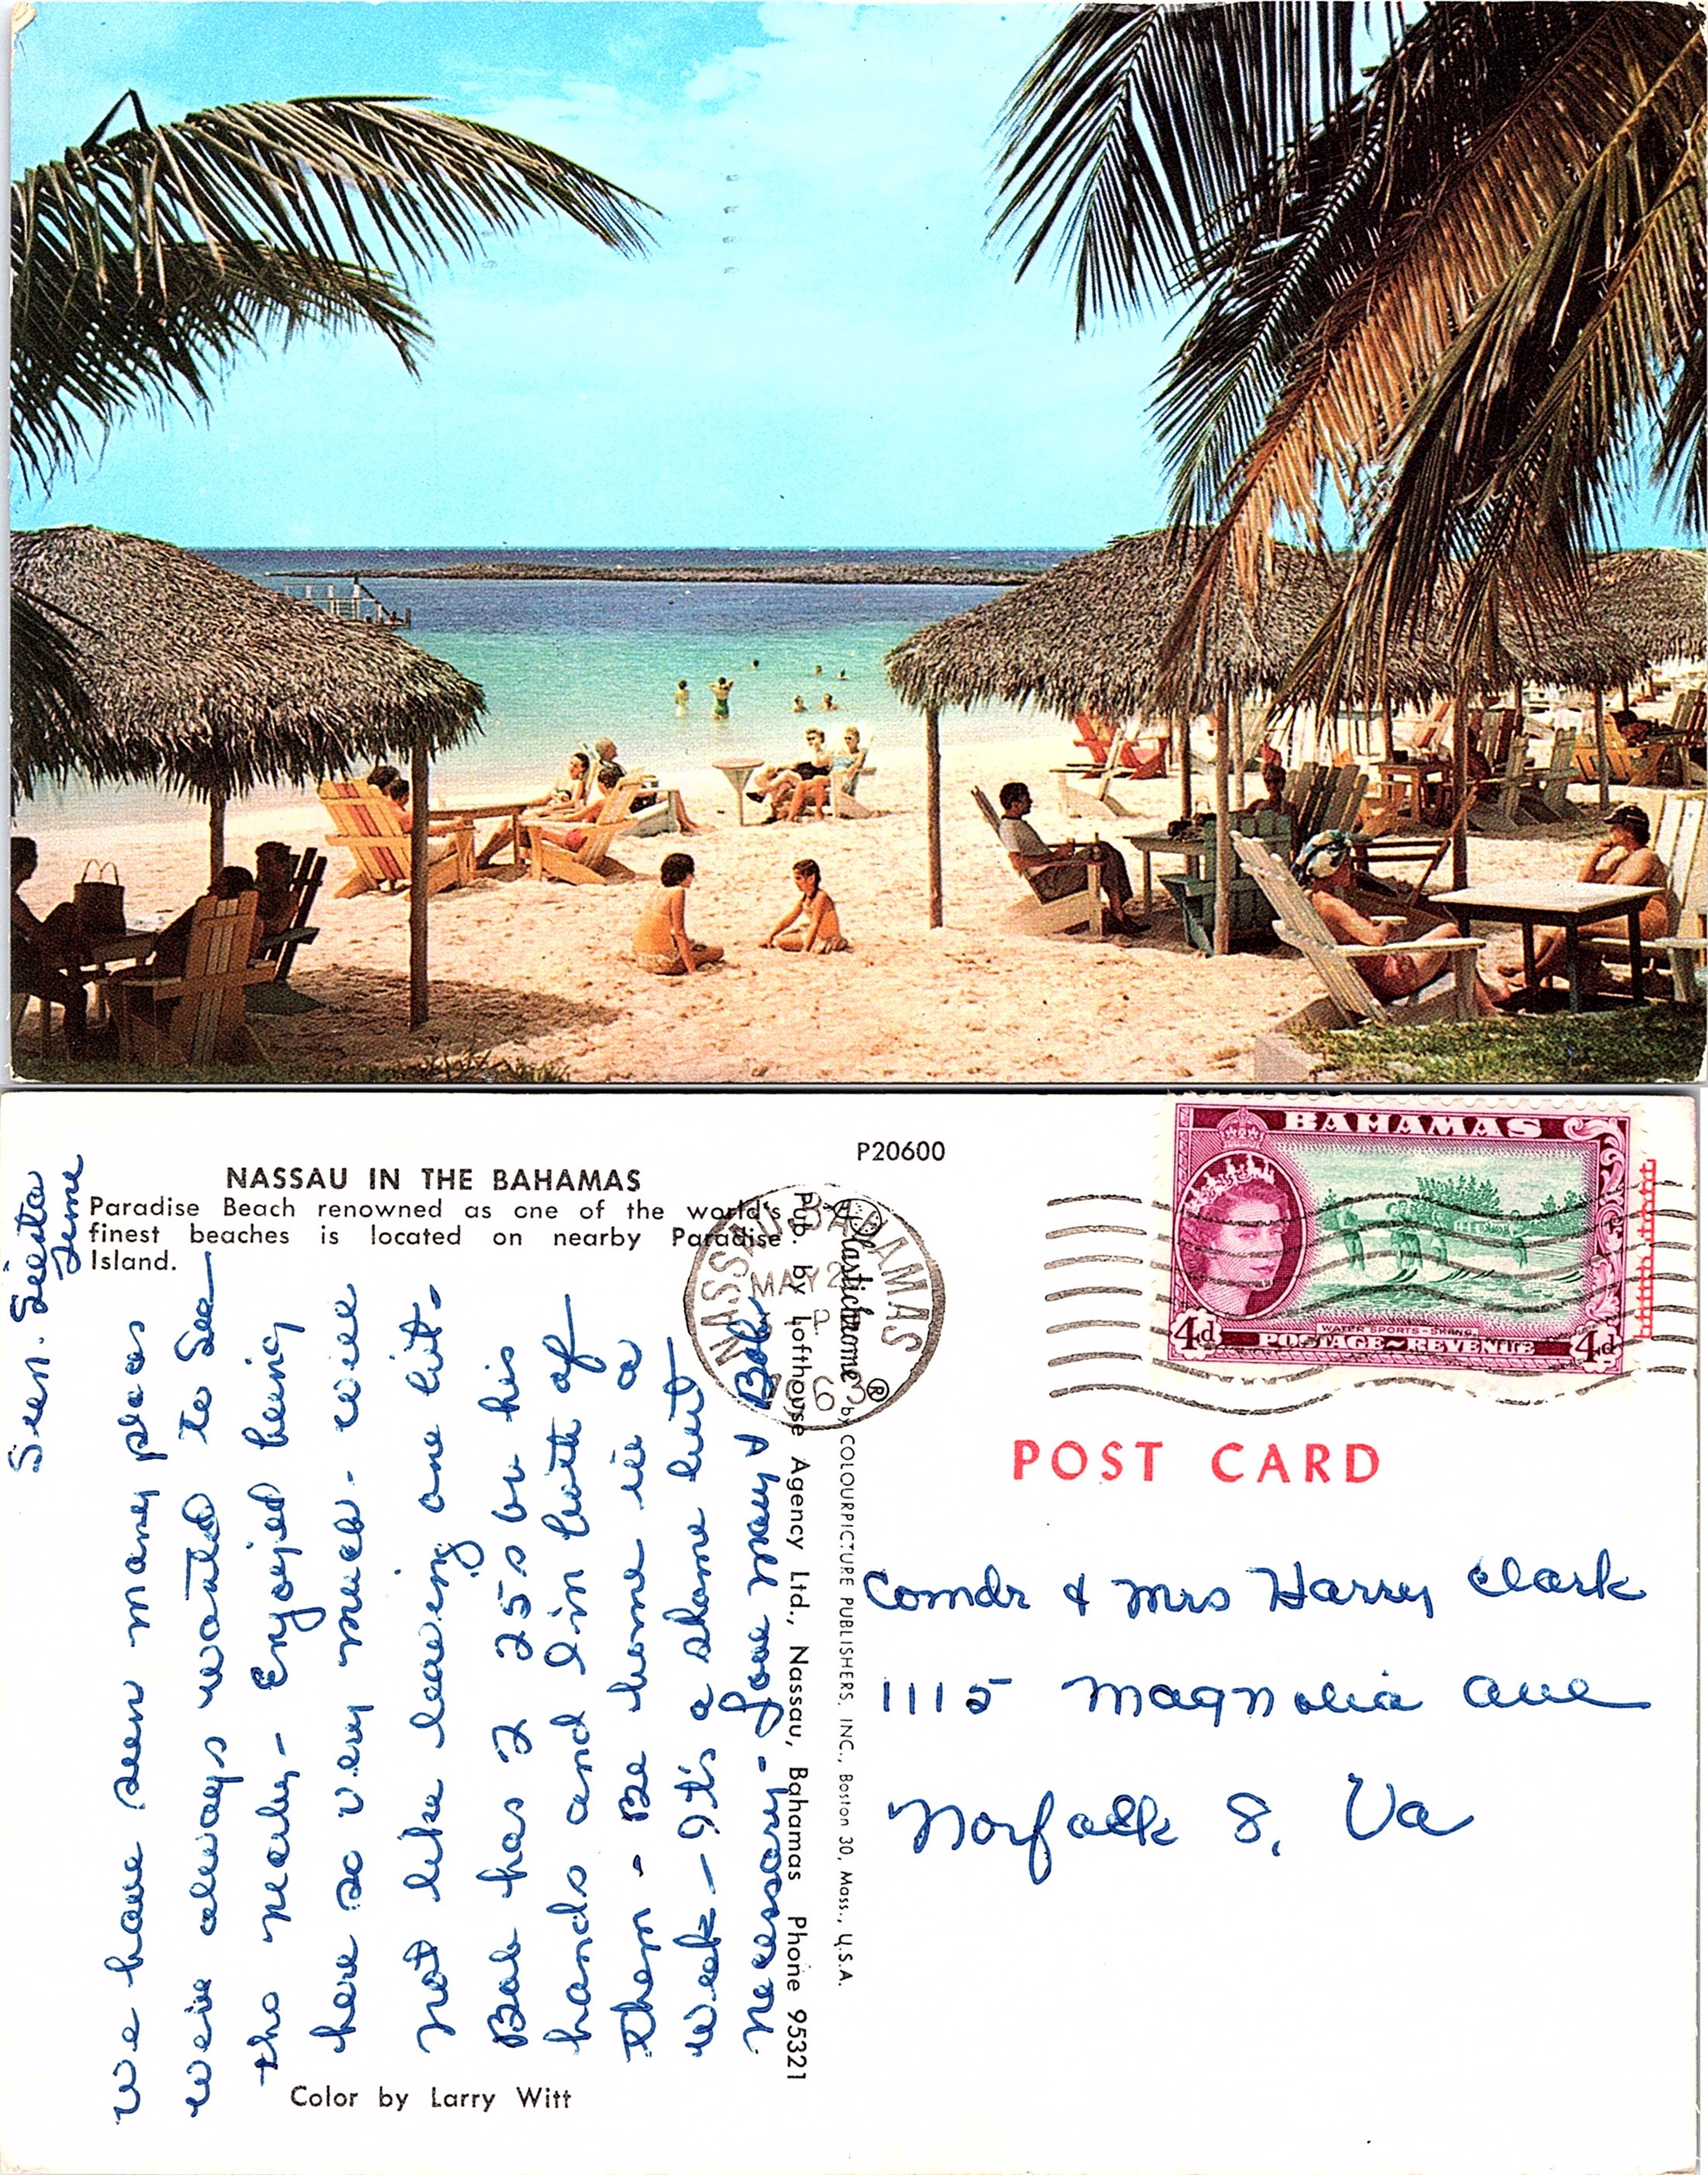 NASSAU IN THE BAHAMAS
Paradise Beach renowned as one of the world's
finest beaches is located on nearby Paradise
Island.
P20600
BAHAMAS
4d
WATER SPORTS - SKIING
POSTAGE REVENUE
4d
NASSAU BAHAMAS
MAY 2
2
63
POST CARD
Comdr & Mrs Harry Clark
1115 Magnolia Ave
Norfolk 8. Va
Pub. by Lofthouse Agency Ltd., Nassau, Bahamas Phone 95321
Plastichrome ® by COLOURPICTURE PUBLISHERS, INC., Boston 30, Mass., U.S.A.
Color by Larry Witt
Sun. Siesta
Time
We have seen many places
we've always wanted to see—
tho really - Enjoyed being
here so very much. will
not like leaving one bit.
Bob has 2 25s on his
hands and I'm both of
them - Be home in a
week - It's a shame but
necessary - Love Mary & Bob